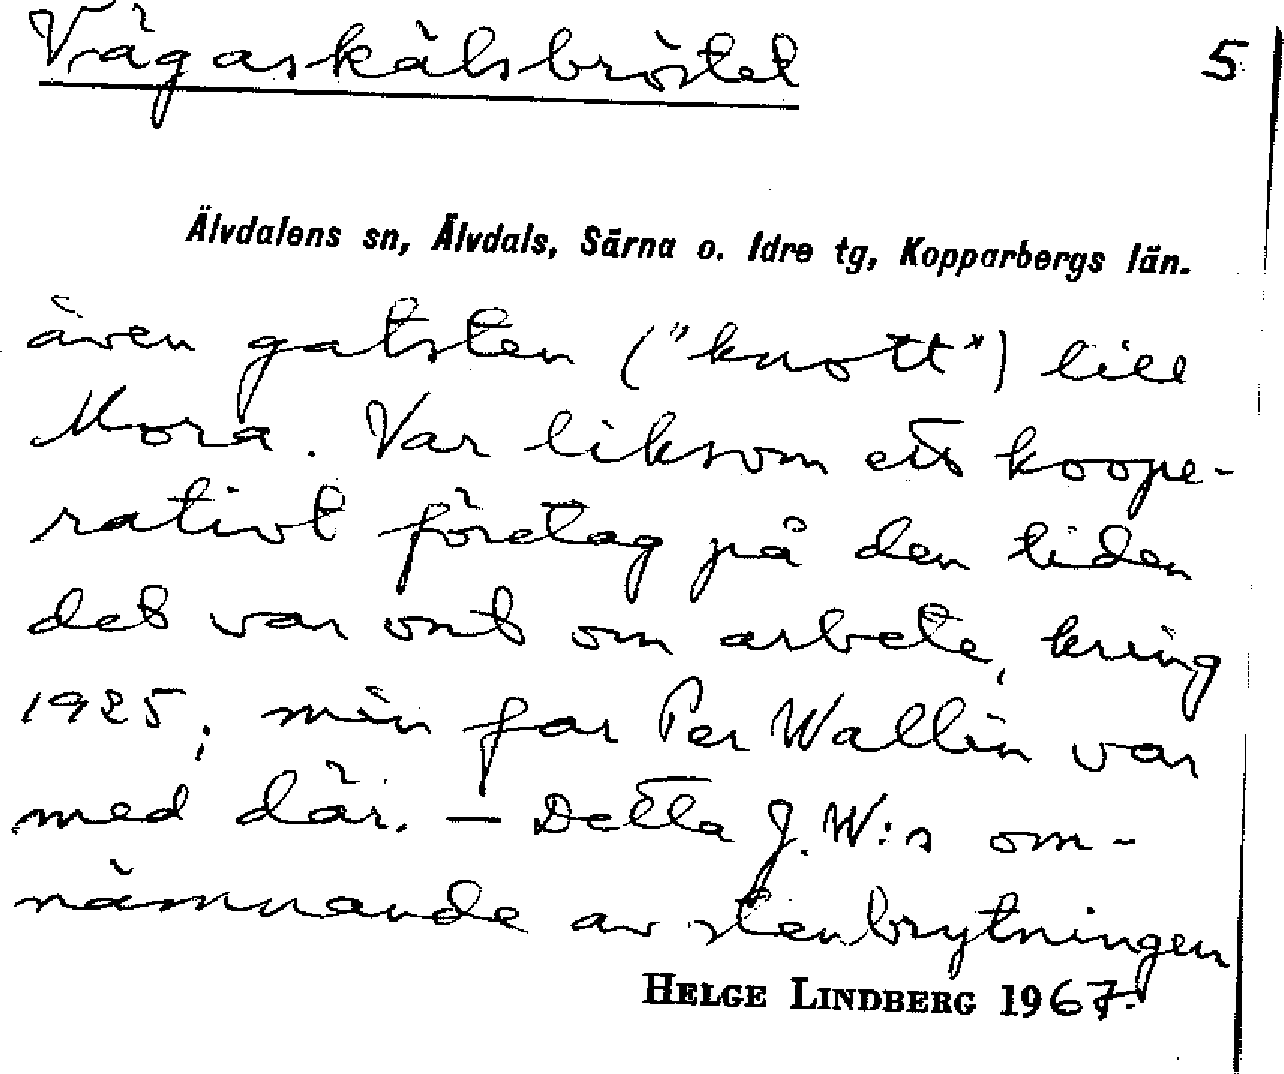 Vägaskälsbröstet 5
Älvdalens sn, Älvdals, Särna o. Idre tg, Kopparbergs län.
även gatsten ("knott") till
Mora. Var liksom ett koope-
rativt företag på den tiden
det var ont om arbete, kring
1925; min far Per Wallin var
med där. — Detta J. W:s om-
nämnande av stenbrytningen
HELGE LINDBERG 1967.